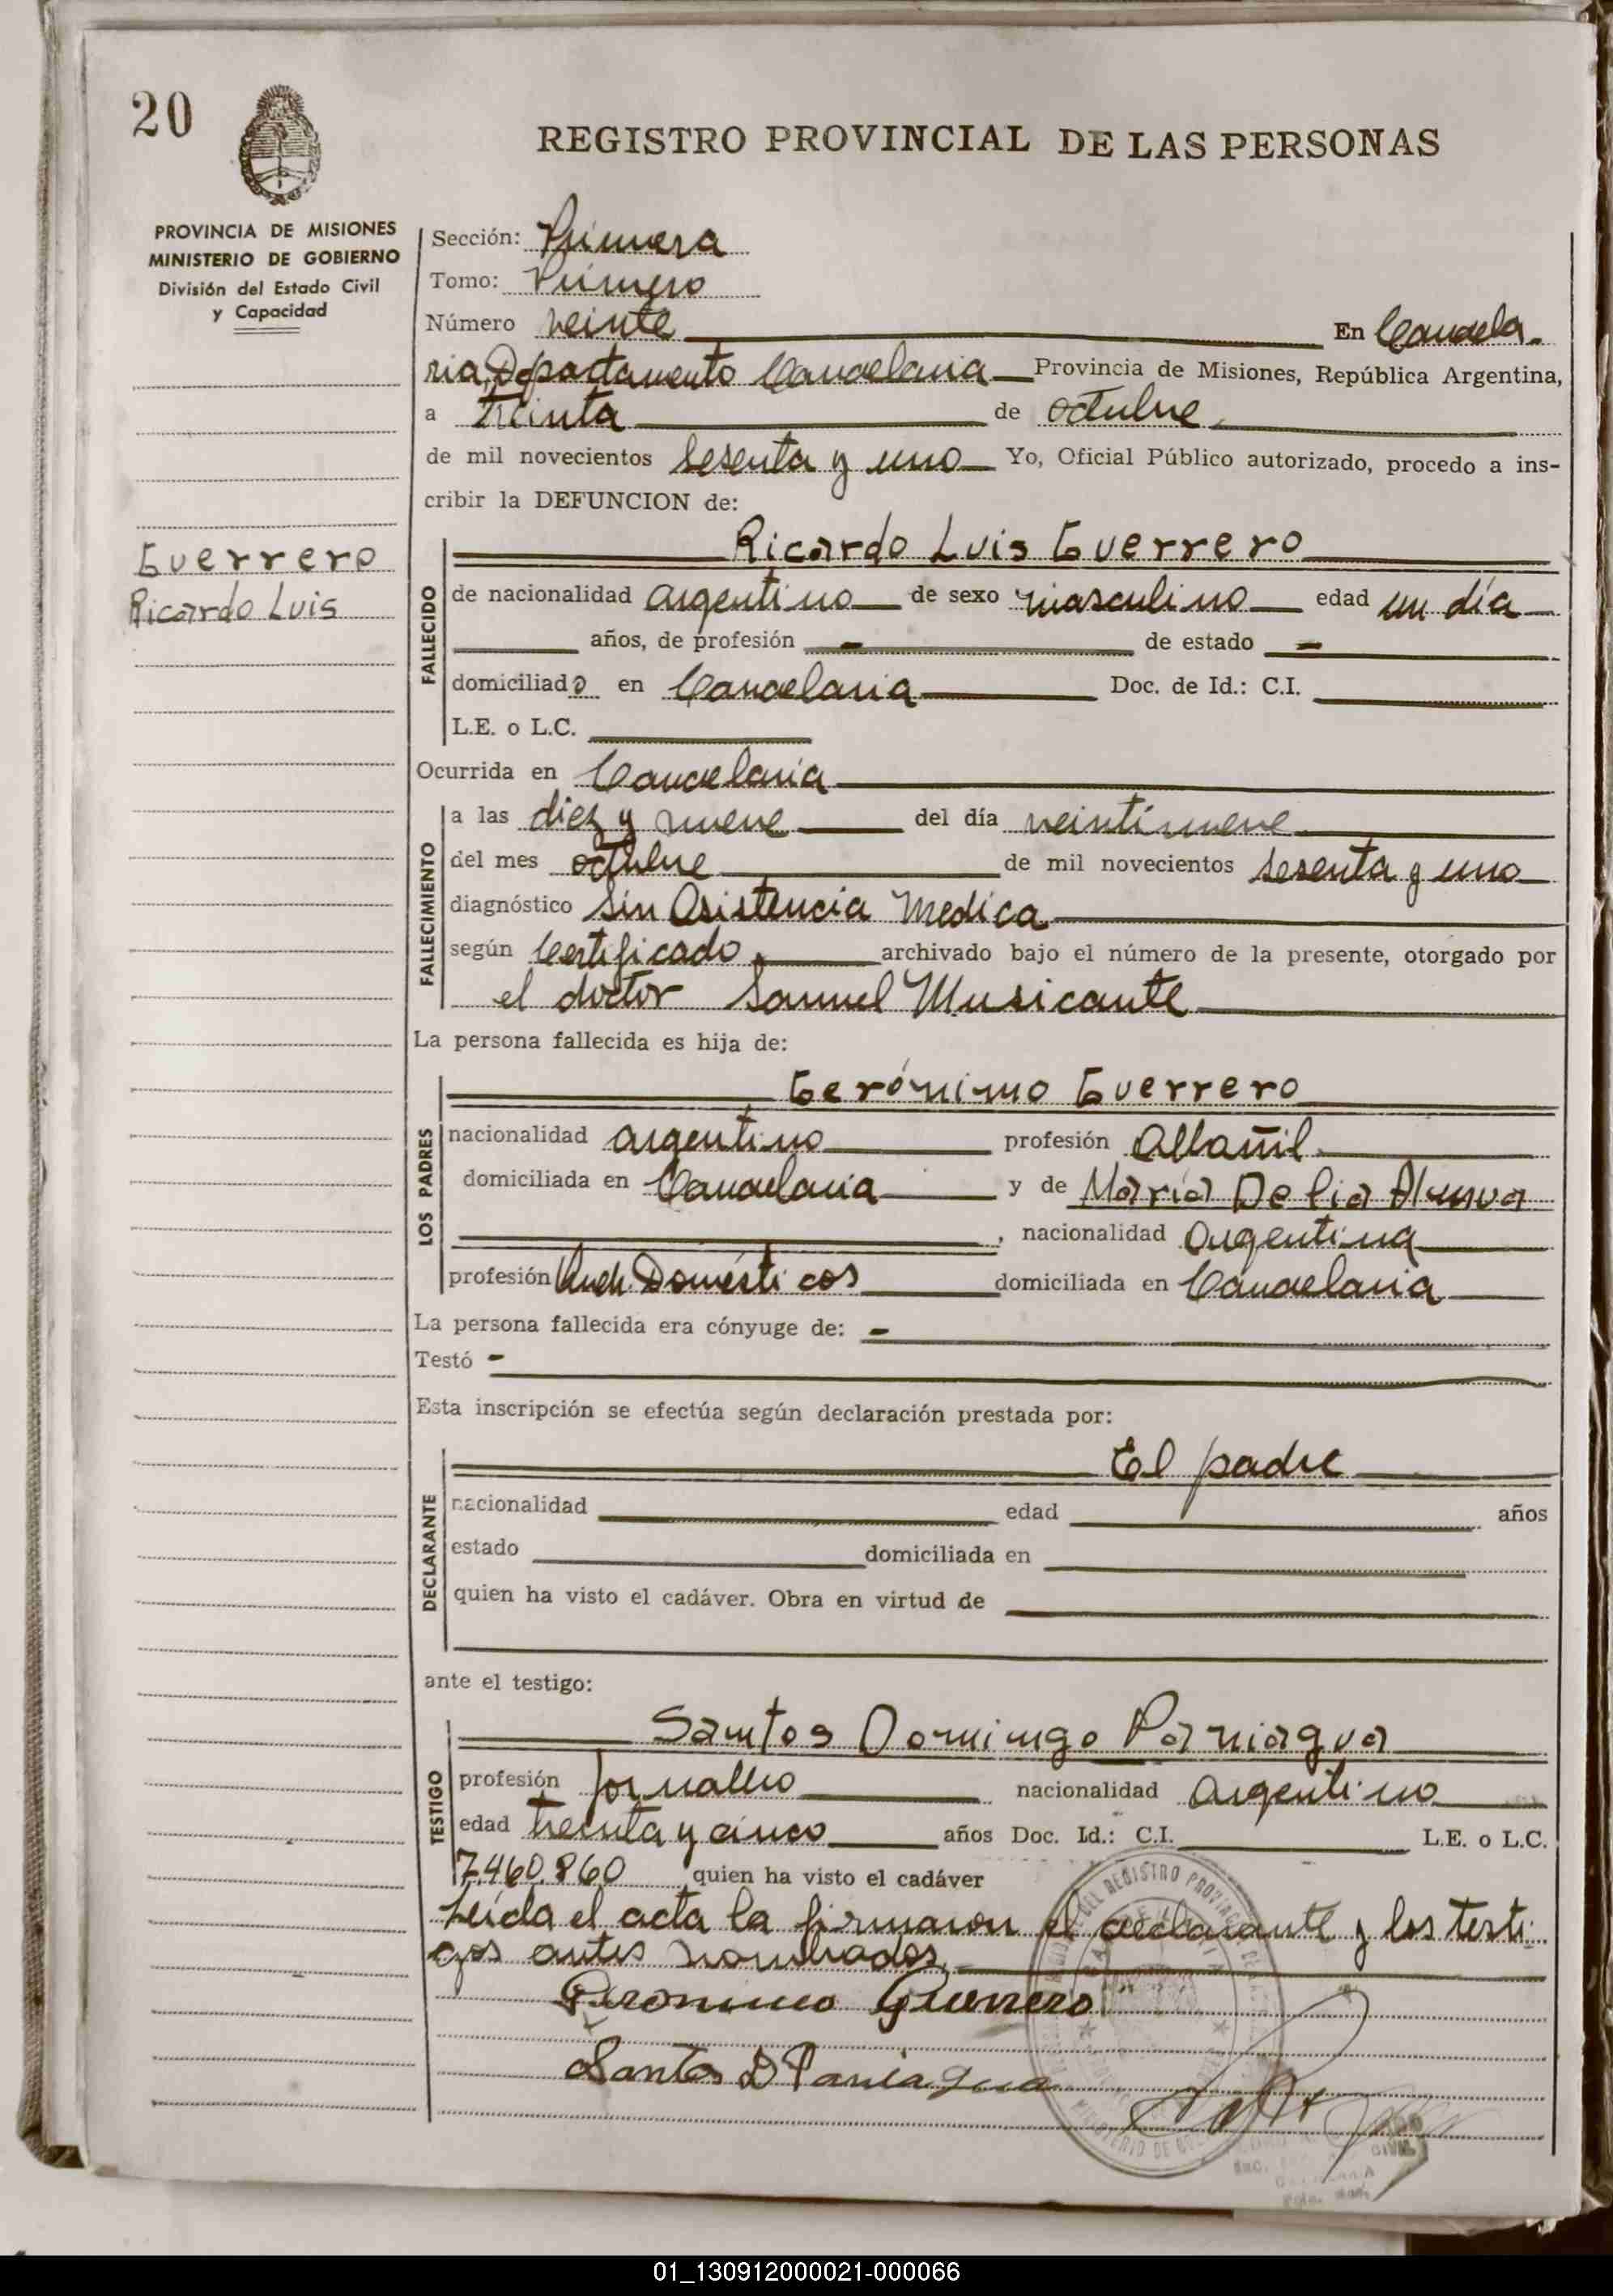 20
REGISTRO PROVINCIAL DE LAS PERSONAS
PROVINCIA DE MISIONES
MINISTERIO DE GOBIERNO
División del Estado Civil
y Capacidad
Guerrero
Ricardo Luis
Sección: Primera
Tomo: Primero
Número veinte En Candela-
ria, Departamento Candelaria Provincia de Misiones, República Argentina,
a treinta de octubre
de mil novecientos sesenta y uno Yo, Oficial Público autorizado, procedo a ins-
cribir la DEFUNCION de:
FALLECIDO
Ricardo Luis Guerrero
de nacionalidad argentino de sexo masculino edad un día
años, de profesión - de estado -
domiciliado en Candelaria Doc. de Id.: C.I.
L.E. o L.C.
Ocurrida en Candelaria
FALLECIMIENTO
a las diez y nueve del día veintinueve
del mes octubre de mil novecientos sesenta y uno
diagnóstico Sin Asistencia Medica
según Certificado archivado bajo el número de la presente, otorgado por
el doctor Samuel Musicante
La persona fallecida es hija de:
LOS PADRES
Gerónimo Guerrero
nacionalidad argentino profesión Albañil
domiciliada en Candelaria y de María Delia
, nacionalidad Argentina
profesión Domésticos domiciliada en Candelaria
La persona fallecida era cónyuge de: -
Testó -
Esta inscripción se efectúa según declaración prestada por:
DECLARANTE
El padre
nacionalidad edad años
estado domiciliada en
quien ha visto el cadáver. Obra en virtud de
ante el testigo:
TESTIGO
Santos Domingo Paniagua
profesión Jornalero nacionalidad Argentino
edad treinta y cinco años Doc. Id.: C.I. L.E. o L.C.
7.460.860 quien ha visto el cadáver
Leída el acta la firmaron el declarante y los testi-
gos antes nombrados.
Geronimo Guerrero
Santos D Paniagua
01_130912000021-000066